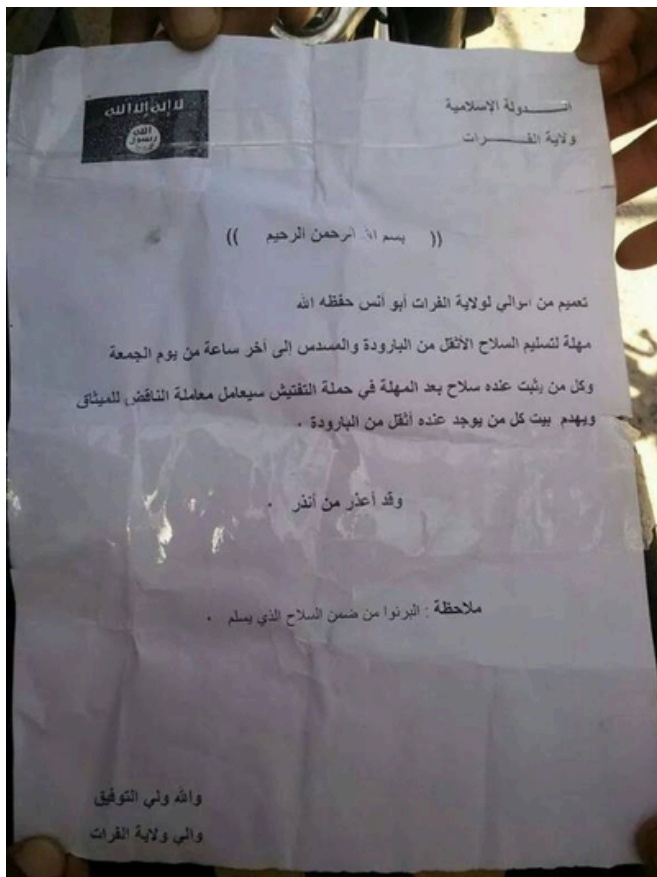 الـــــدولة الإسلامية
ولاية الفـــــــرات
لا إله إلا الله
الله
رسول
محمد
(( بسم الله الرحمن الرحيم ))
تعميم من الوالي لولاية الفرات أبو أنس حفظه الله
مهلة لتسليم السلاح الأثقل من البارودة والمسدس إلى أخر ساعة من يوم الجمعة
وكل من يثبت عنده سلاح بعد المهلة في حملة التفتيش سيعامل معاملة الناقض للميثاق
ويهدم بيت كل من يوجد عنده أثقل من البارودة .
وقد أعذر من أنذر .
ملاحظة : البرنوا من ضمن السلاح الذي يسلم .
والله ولي التوفيق
والي ولاية الفرات